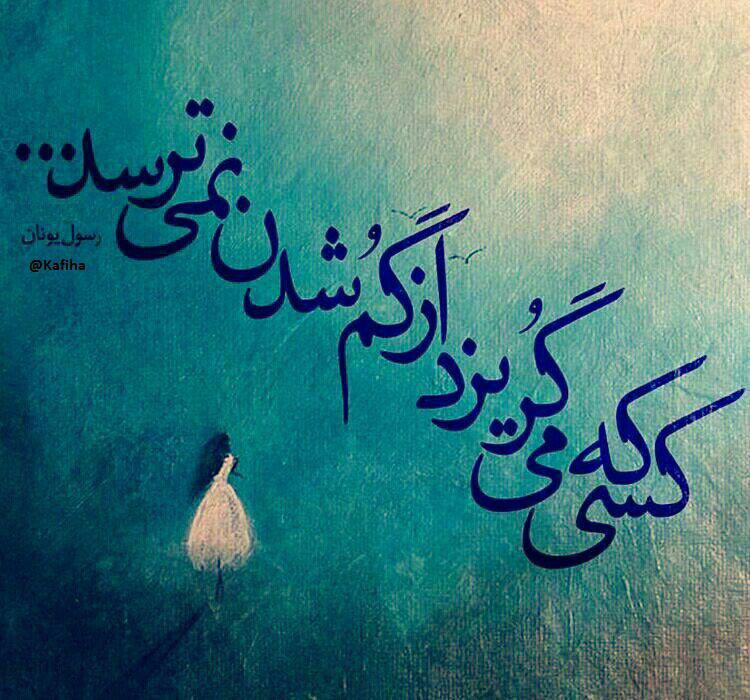 کسی که می گُریزد از گُم شدن نمی ترسد...
رسول یونان
@Kafiha